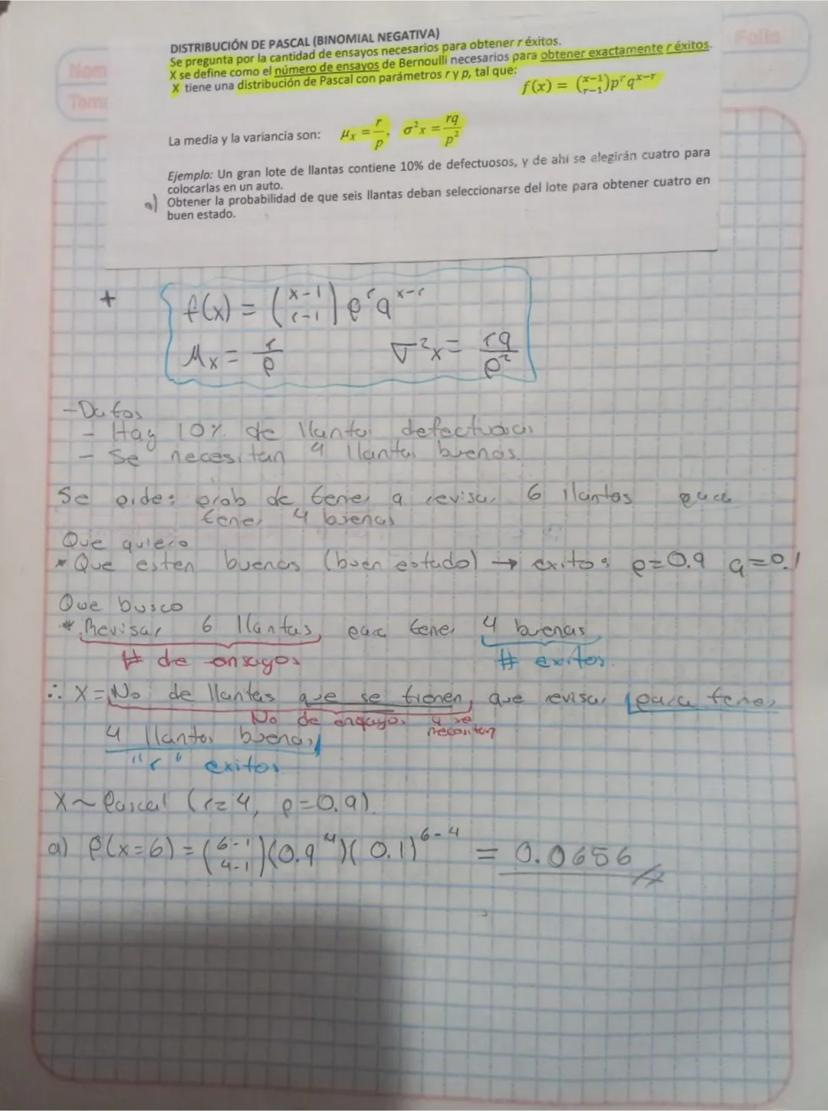 Folio
Nom
Tema
DISTRIBUCIÓN DE PASCAL (BINOMIAL NEGATIVA)
Se pregunta por la cantidad de ensayos necesarios para obtener r éxitos.
X se define como el número de ensayos de Bernoulli necesarios para obtener exactamente r éxitos.
X tiene una distribución de Pascal con parámetros r y p, tal que: f(x) = (x−1 r−1) p^r q^(x−r)
La media y la variancia son: μx = r/p, σ²x = rq/p²
Ejemplo: Un gran lote de llantas contiene 10% de defectuosos, y de ahí se elegirán cuatro para
colocarlas en un auto.
a) Obtener la probabilidad de que seis llantas deban seleccionarse del lote para obtener cuatro en
buen estado.
+ f(x) = (x-1 r-1) p^r q^(x-r)
μx = r/p σ²x = rq/p²
-Datos
- Hay 10% de llantas defectuosas
- Se necesitan 4 llantas buenas.
Se pide: prob de tener q revisar 6 llantas para
tener 4 buenas
Que quiero
* Que esten buenas (buen estado) → exitos p=0.9 q=0.1
Que busco
* Revisar 6 llantas, para tener 4 buenas
# de ensayos # exitos.
∴ X = No de llantas que se tienen que revisar para tener
No de ensayos q se necesitan
4 llantas buenas
"r" exitos
X ~ Pascal (r=4, p=0.9)
a) P(x=6) = (6-1 4-1)(0.9^4)(0.1)^(6-4) = 0.0656